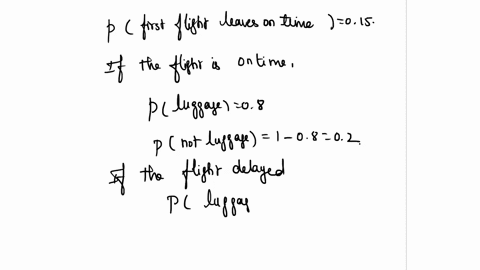 P( first flight leaves on time ) = 0.15.
If the flight is on time,
P( luggage) = 0.8
P( not luggage) = 1 - 0.8 = 0.2
If the flight delayed
P( luggag